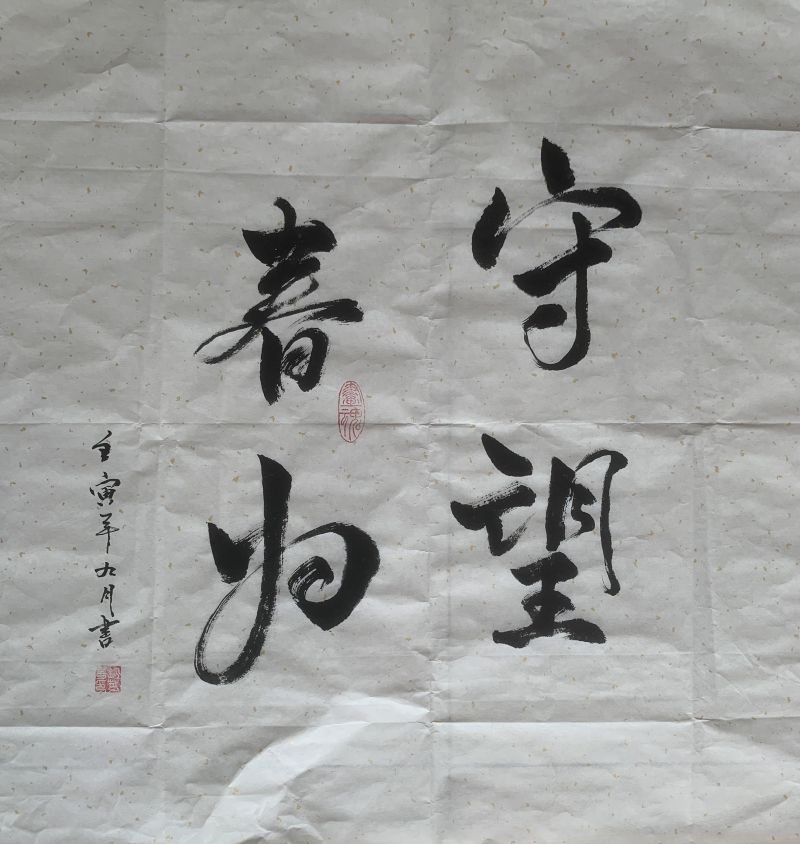 守望
春归
壬寅年九月书